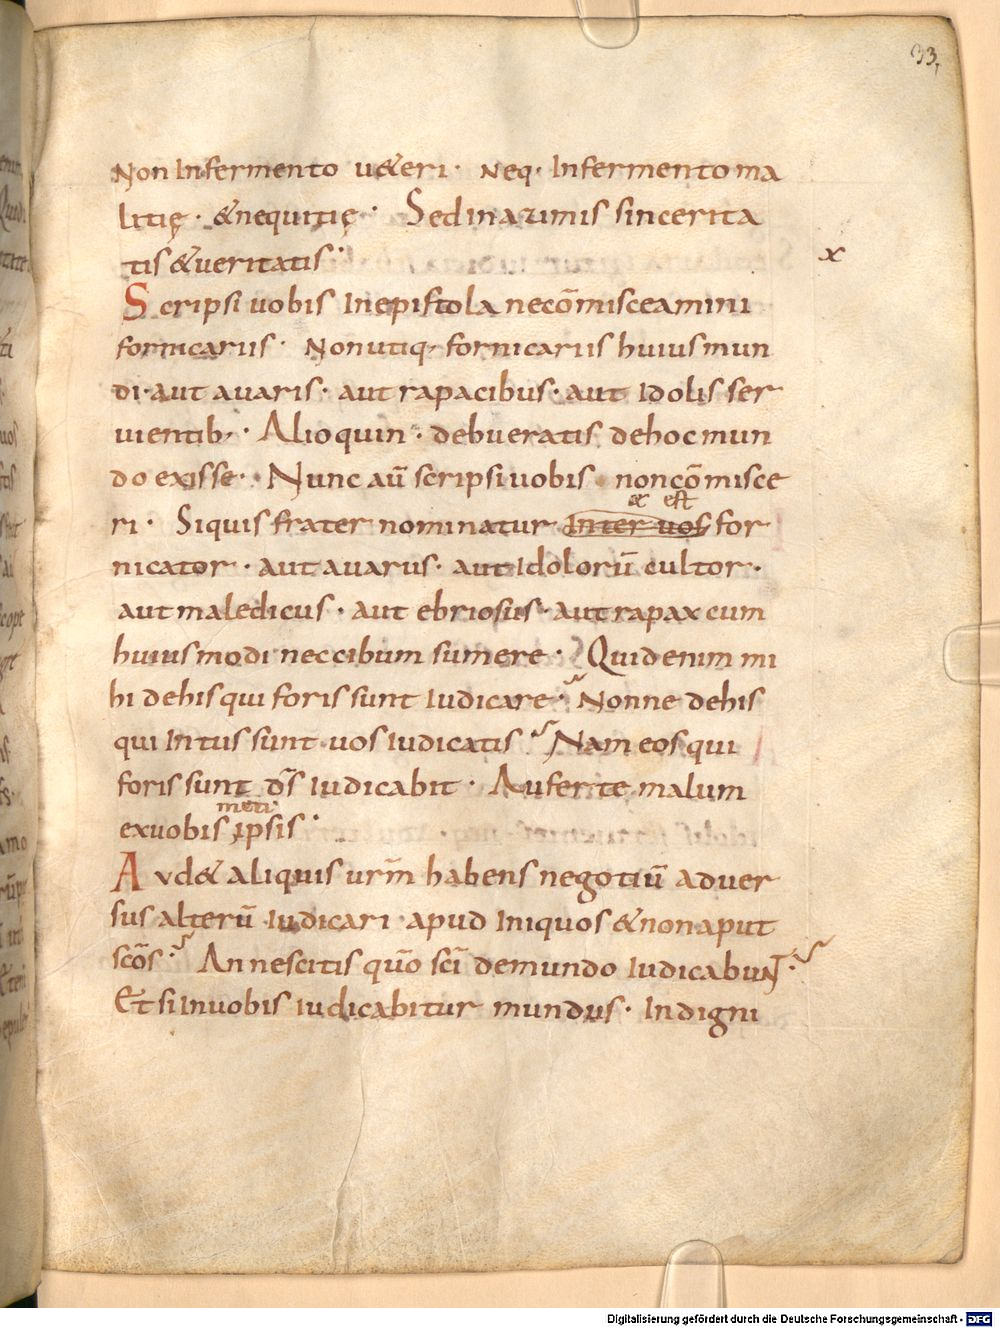 33,
Non In fermento uet&eri · neq· In fermento ma
litię · & nequitię · Sed In azimis sincerita
tis & ueritatis · x
Scripsi uobis In epistola ne cōmisceamini
fornicariis · Non utiq, fornicariis huius mun
di · aut auaris · aut rapacibus · aut Idolis ser
uientib, · Alioquin · debueratis de hoc mun
do exisse · Nunc aū scripsi uobis · non cōmisce
ri · Siquis frater nominatur Inter uos for
nicator · aut auarus · aut Idolorū cultor ·
aut maledicus · aut ebriosus · aut rapax cum
huiusmodi nec cibum sumere · Quid enim mi
hi de his qui foris sunt Iudicare · Nonne de his
qui Intus sunt uos Iudicatis · Nam eos qui
foris sunt d̄s Iudicabit · Auferte malum
meti
ex uobis ipsis ·
Aud& aliquis urm̄ habens negotiū aduer
sus alterū Iudicari apud Iniquos & non aput
scōs · An nescitis qūo scī de mundo Iudicabunt ·
Et si In uobis Iudicabitur mundus · Indigni
Digitalisierung gefördert durch die Deutsche Forschungsgemeinschaft - DFG